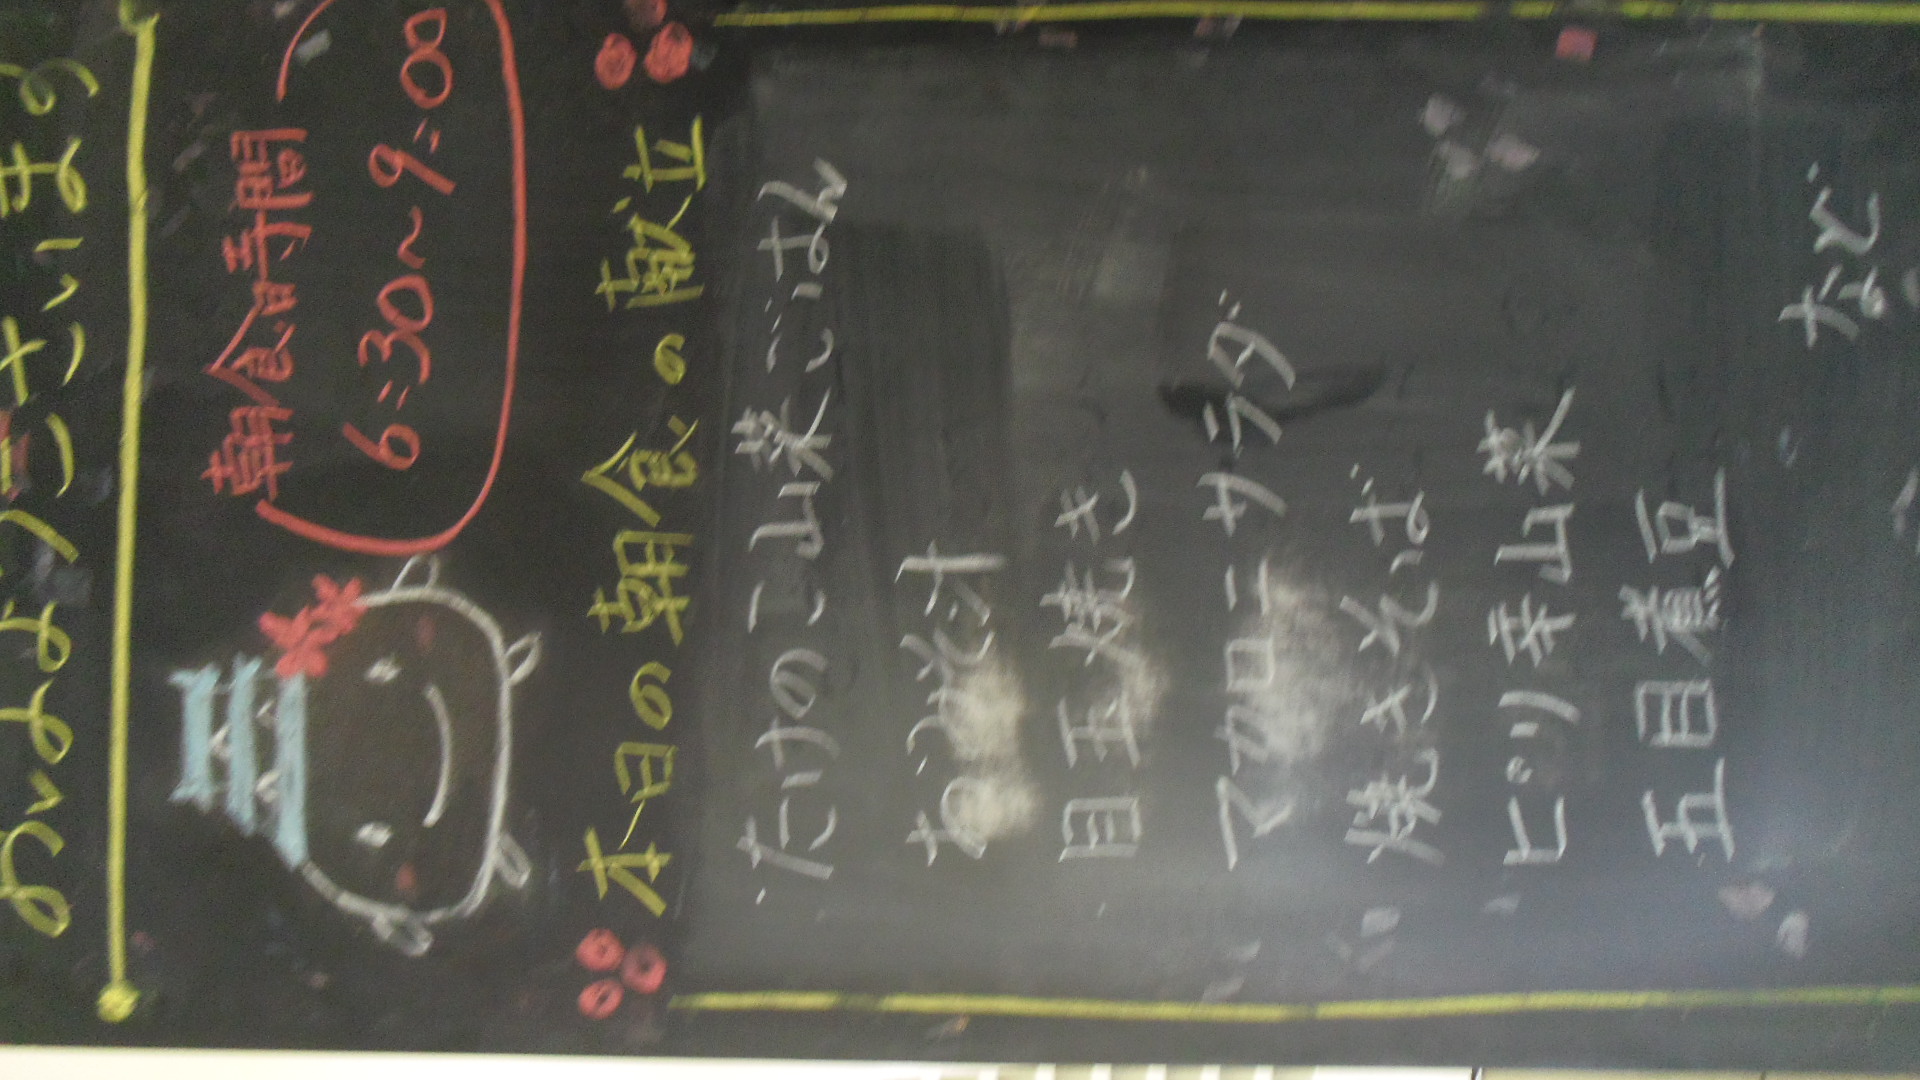 おはようございます
朝食時間
6:30~9:00
本日の朝食の献立
たけのこ山菜ごはん
おみそ汁
目玉焼き
マカロニサラダ
焼きそば
ピリ辛山菜
五目煮豆
など